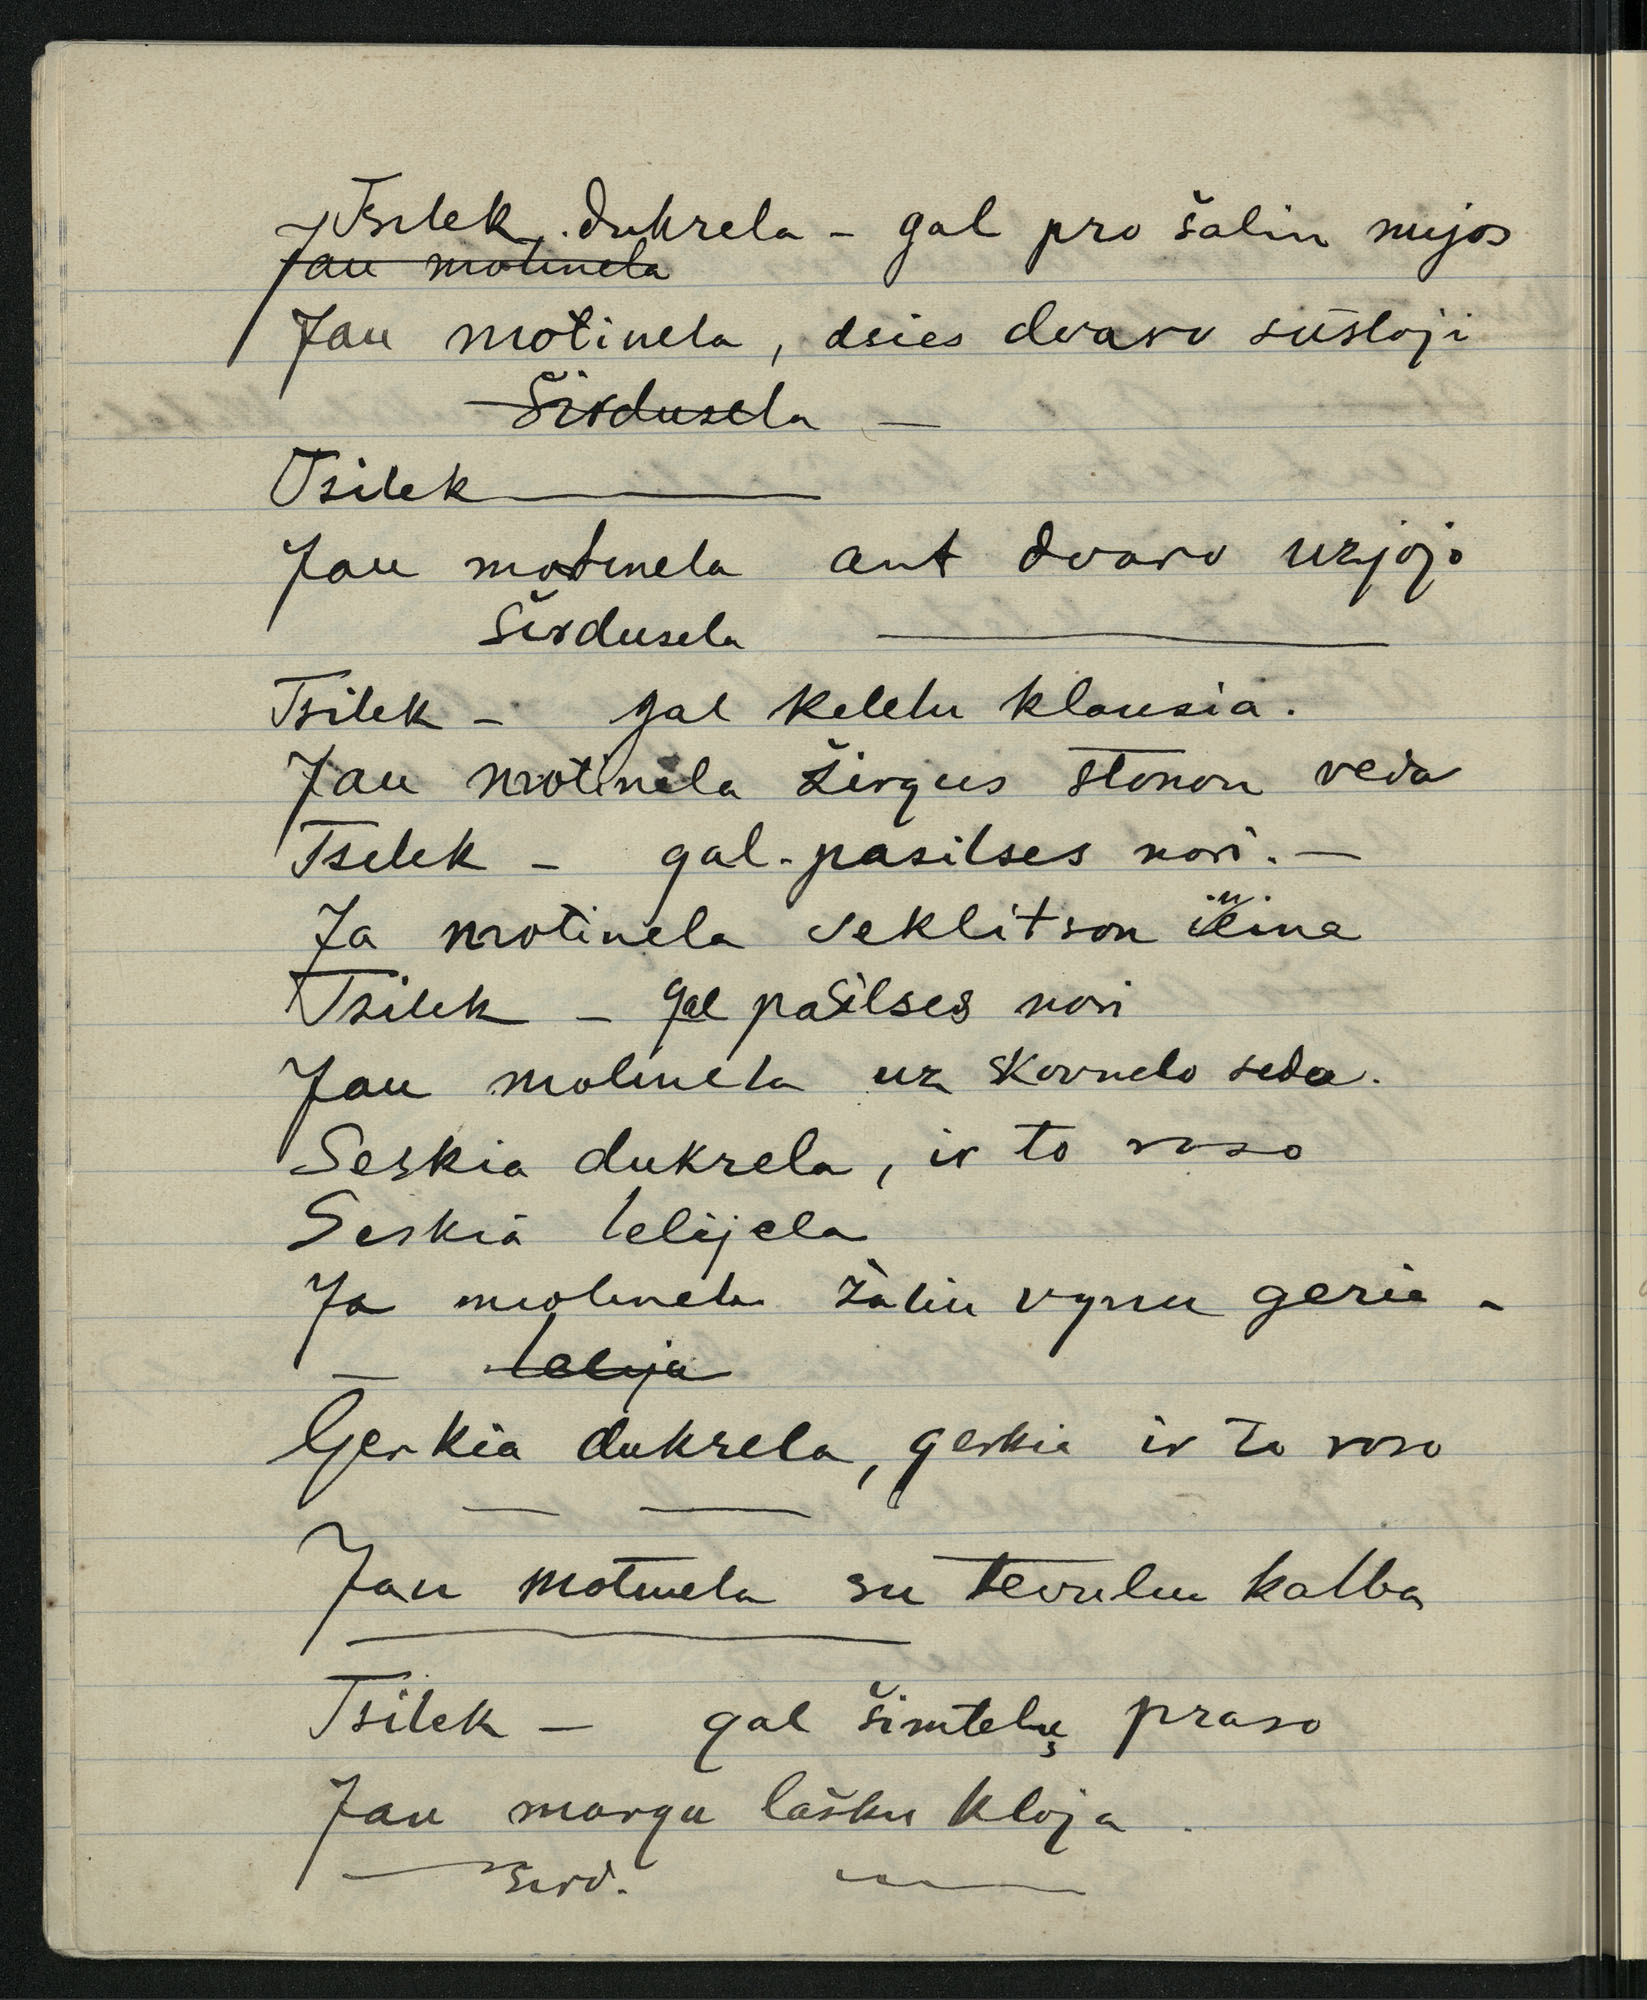 Tsilek, dukrela – gal pro šalin nujos
Jau motinela
Jau motinela, dsies dvaro sustoji
Širdusela –
Tsilek ———
Jau motinela ant dvaro uzjojo
Širdusela ———
Tsilek – gal kelelu klausia.
Jau motinela žirgus stonon veda
Tsilek – gal pasilses nori. –
Ja motinela seklitson ineina
Tsilek – gal pasilses nori
Jau motinela uz skovnelo seda.
Seskia dukrela, ir to roso
Seskia lelijela
Ja motinela žaliu vynu geria –
– lelija
Gerkia dukrela, gerkia ir to roso
— —
Jau motinela su tevulu kalba
———
Tsilek – gal šimtelus praso
Jau margu lašku kloja.
— Sird. —